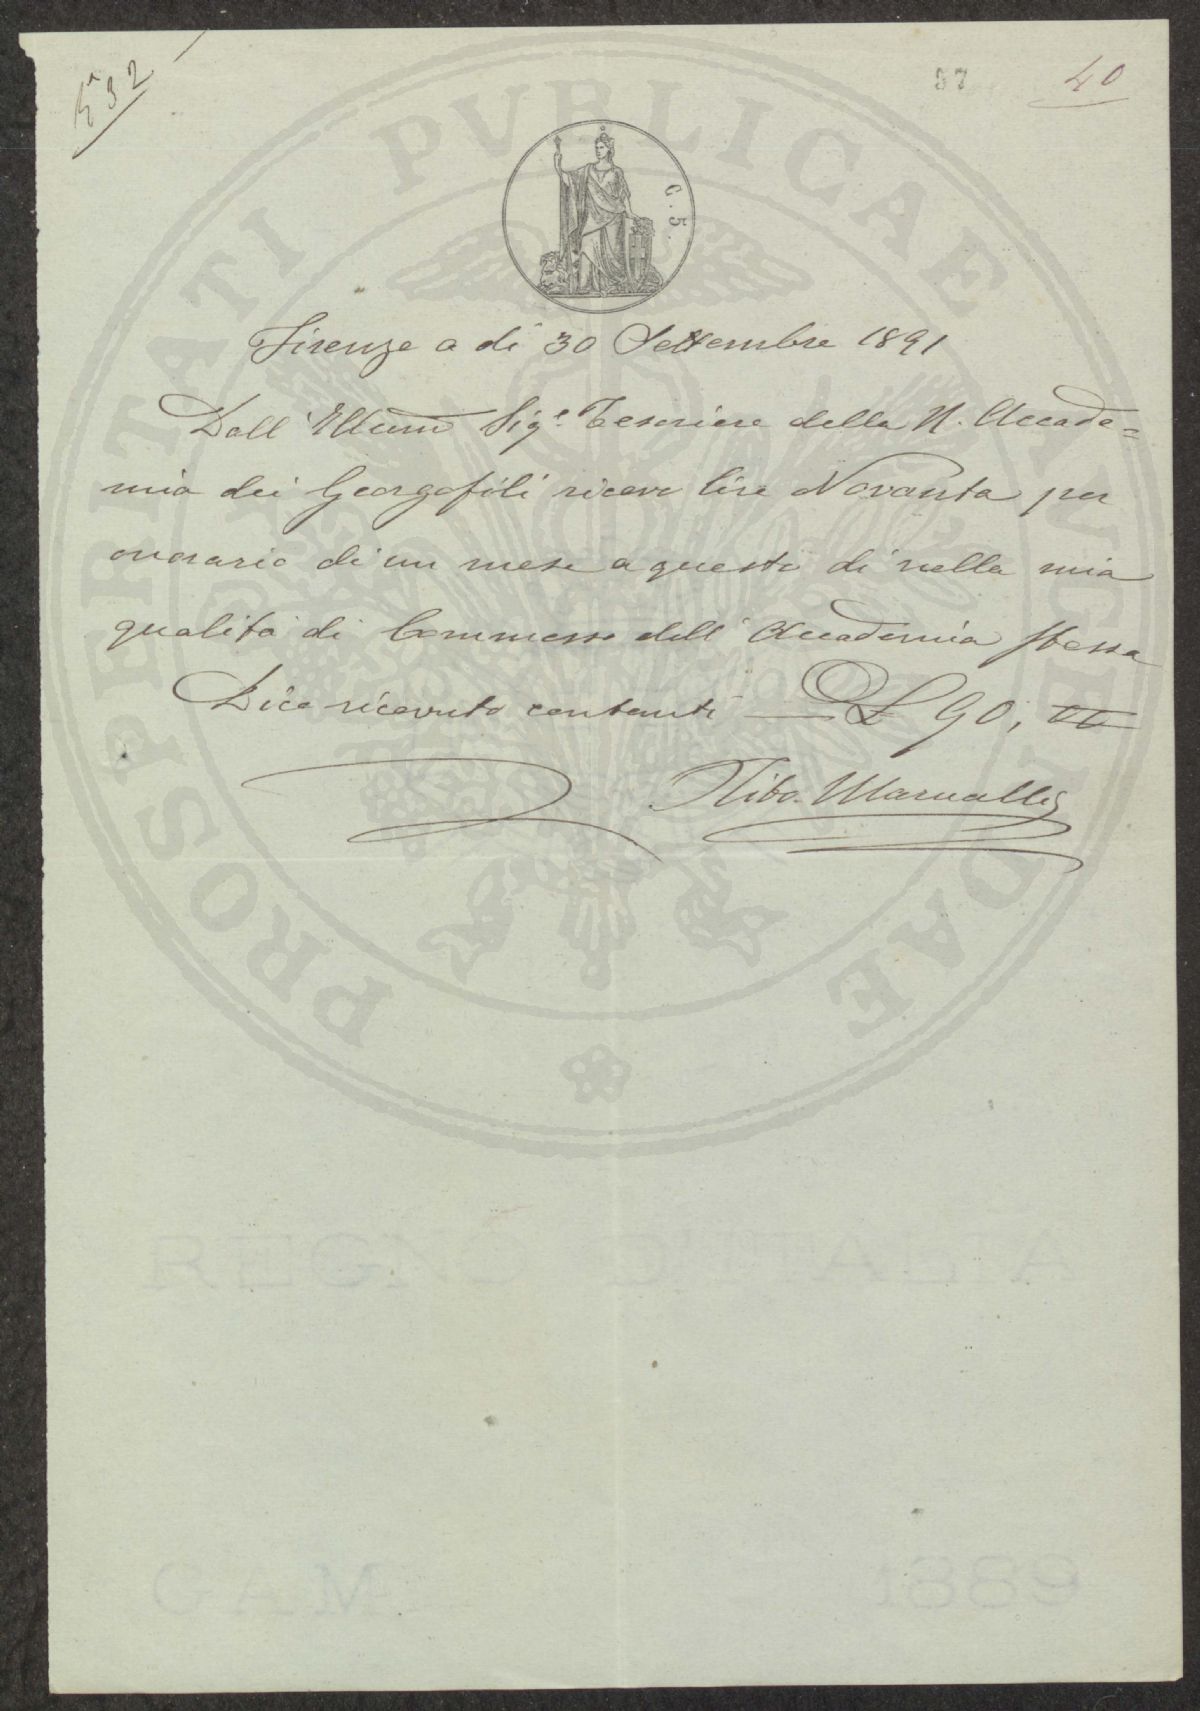 32
37
40
C. 5.
Firenze a dì 30 Settembre 1891
Dall' Illum Sige Tesoriere della R. Accade=
mia dei Georgofili ricevo lire Novanta per
onorario di un mese a questo dì nella mia
qualità di Commesso dell' Accademia stessa
Dico ricevuto contanti — L 90,
PROSPERITATI PVBLICAE AVGENDAE
REGNO D'ITALIA
GAM 1889